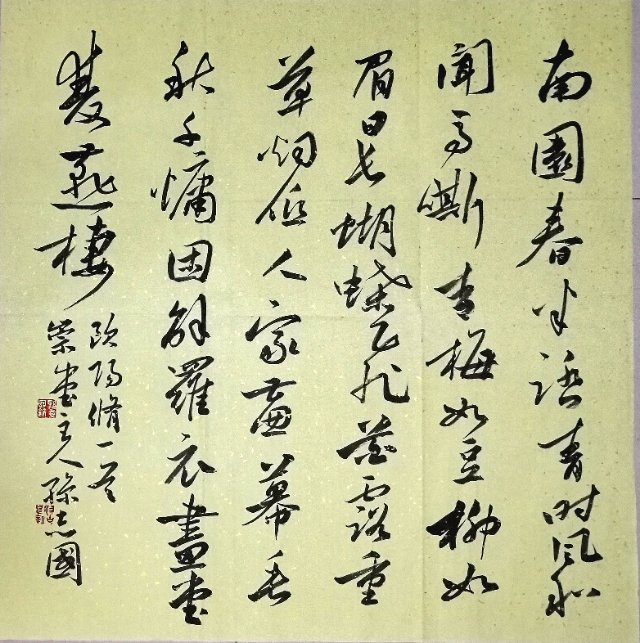 南園春半踏青时風和
聞馬嘶青梅如豆柳如
眉日長蝴蝶飛花露重
草烟低人家簾幕垂
秋千慵困解羅衣畫堂
雙燕棲
欧陽脩一首
堂主人孫志國